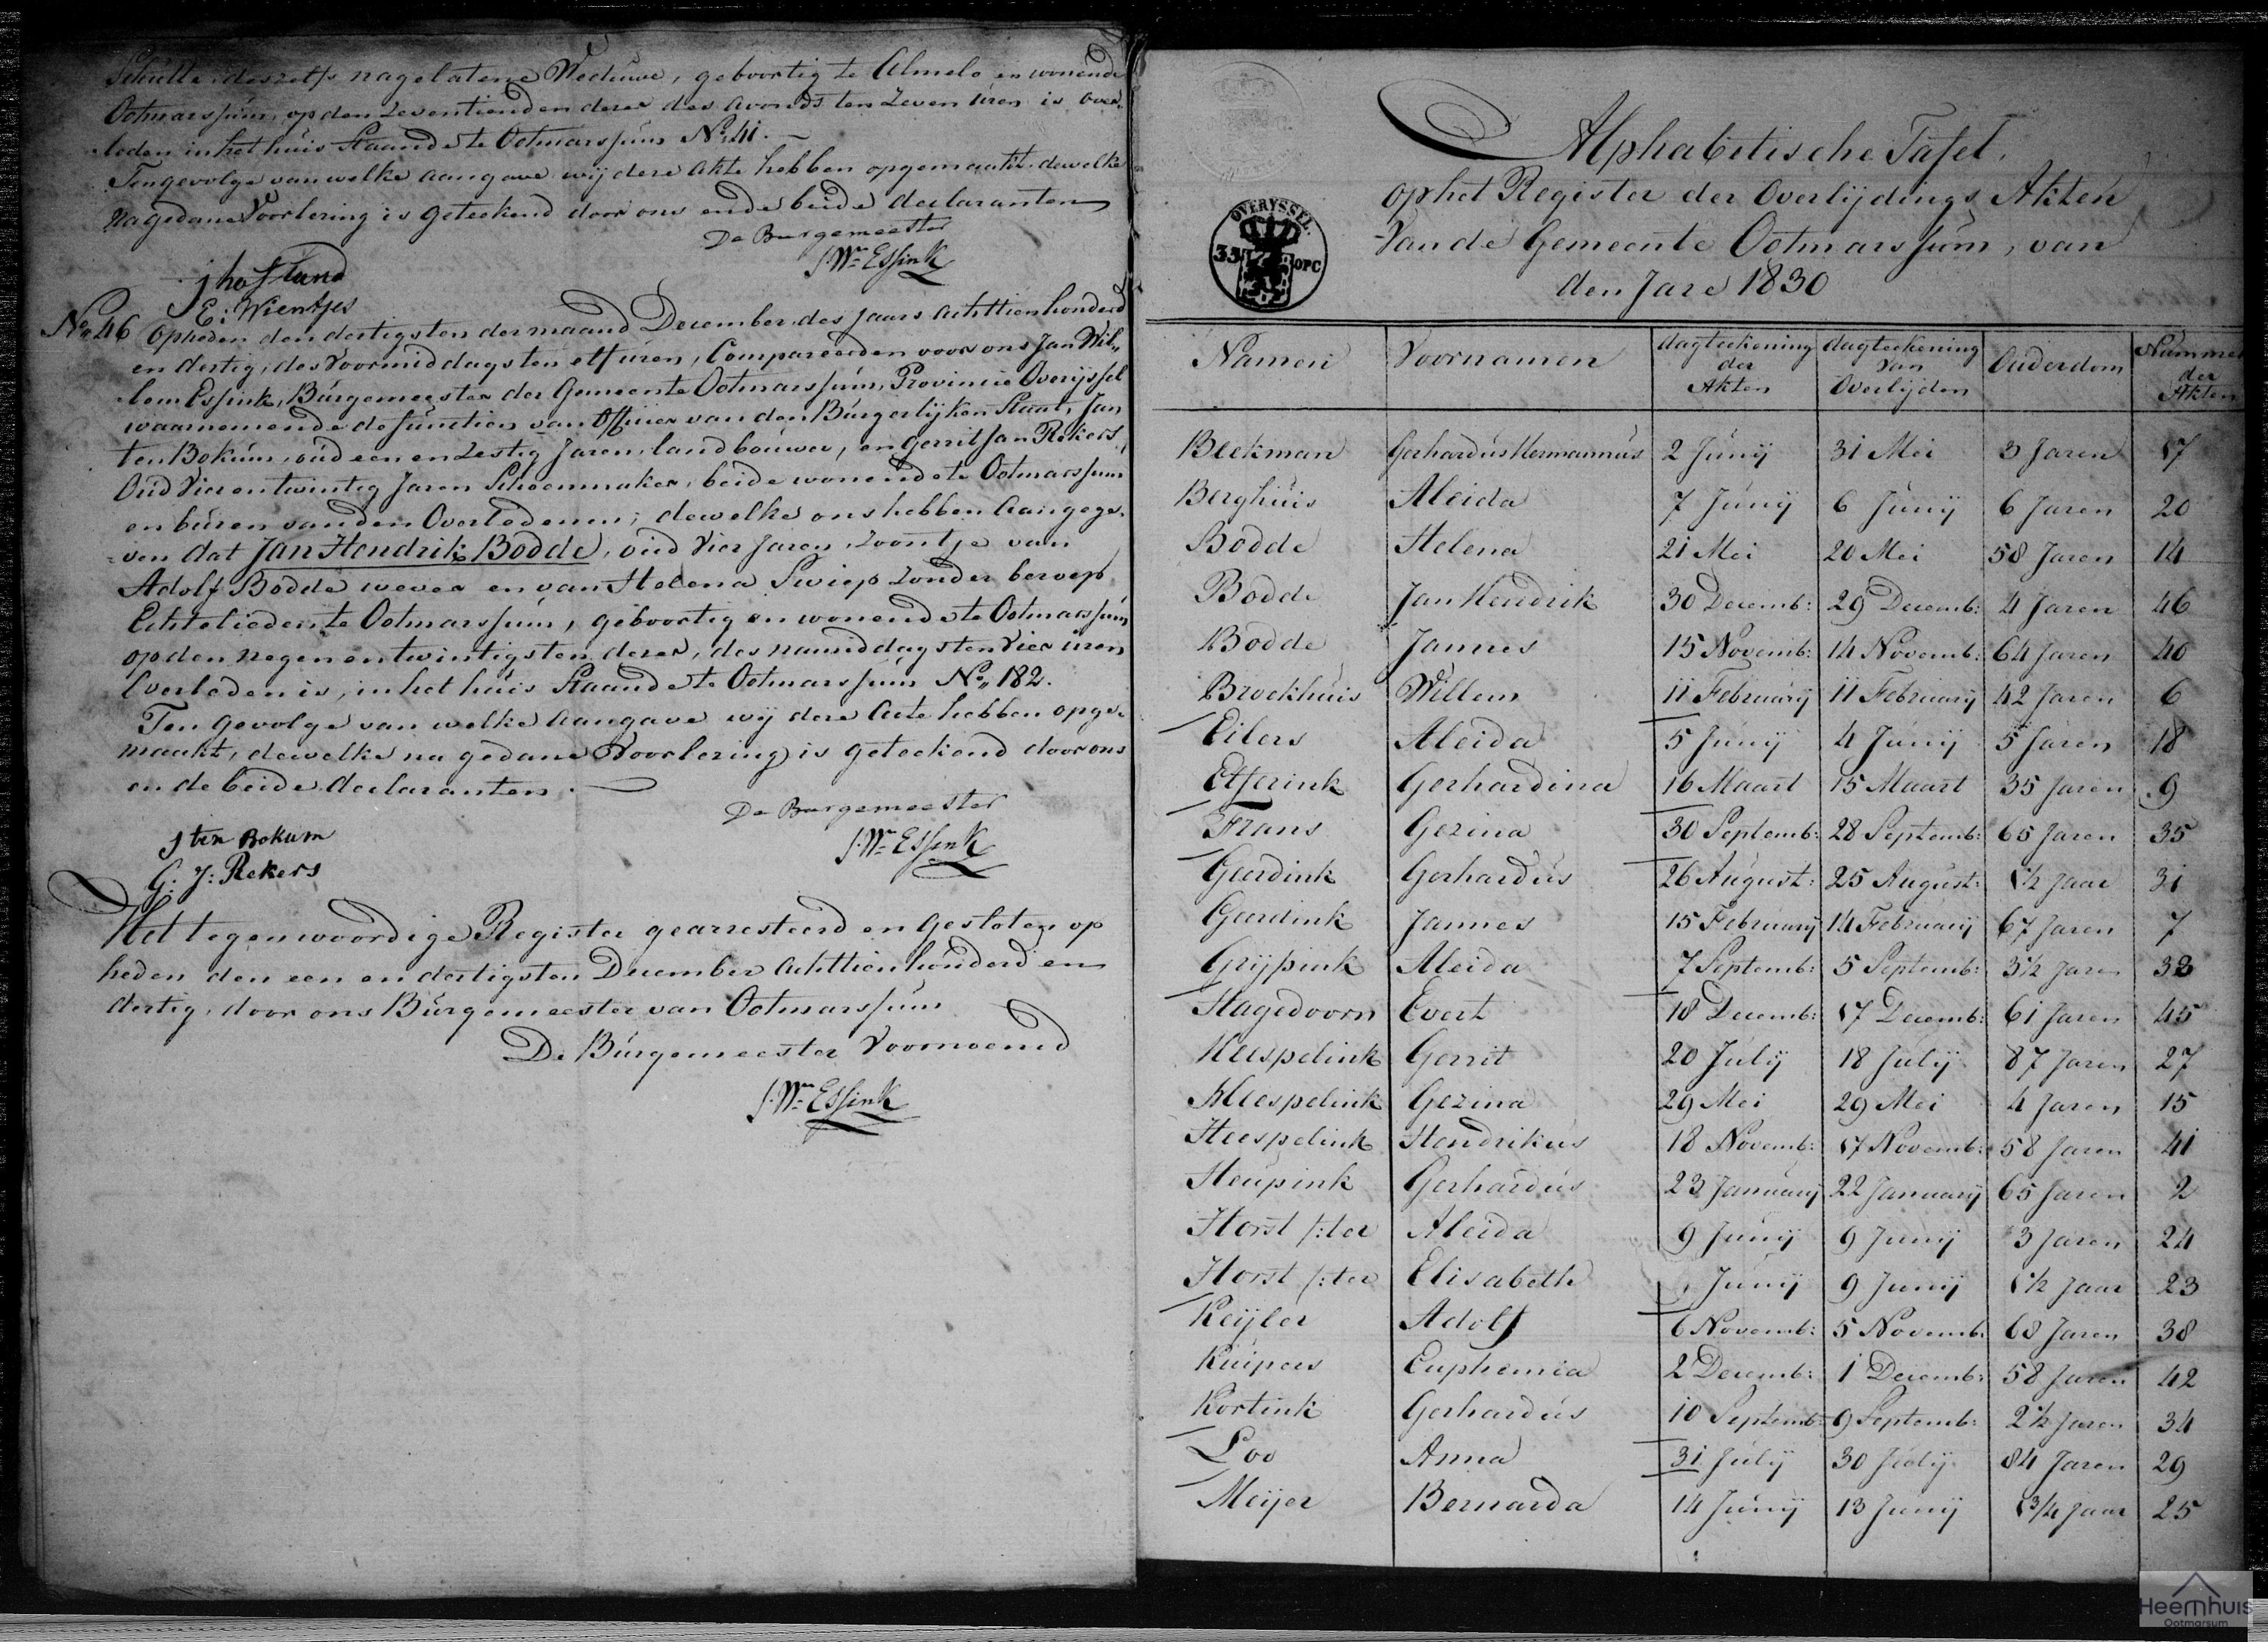 Schulte deszelfs nagelatene Weduwe, geboortig te Almelo en wonende
Ootmarssum, op den Zeventienden dezer des avonds ten Zeven uren is over,
leden in het huis Staande te Ootmarssum No. 41.
Ten gevolge van welke aangave wij deze Akte hebben opgemaakt dewelke
na gedane Voorlezing is Geteekend door ons en de beide declaranten
De Burgemeester
J. Wm Essink
J hofland
E: Wientjes
No. 46 Op heden den dertigsten der maand December des Jaars Achttienhonderd
en dertig, des Voormiddags ten elf uren, Compareerden voor ons Jan Wil„
lem Essink, Burgemeester der Gemeente Ootmarssum, Provincie Overijssel
waarnemende de functien van Officier van den Burgerlijken Staat, Jan
ten Bokum, oud een en Zestig Jaren, landbouwer, en Gerrit Jan Rekers,
Oud Vier en twintig Jaren Schoenmaker, beide wonende te Ootmarssum
en buren van den Overledenen; dewelke ons hebben Aangege-
ven dat Jan Hendrik Bodde, oud Vier Jaren, Zoontje van
Adolf Bodde wever en van Helena Swiep Zonder beroep
Echtelieden te Ootmarssum, geboortig en wonende te Ootmarssum
op den negen en twintigsten dezer, des namiddags ten Vier uren
Overleden is, in het huis Staande te Ootmarssum No. 182.
Ten Gevolge van welke Aangave wij deze Acte hebben opge-
maakt, dewelke na gedane Voorlezing is geteekend door ons
en de beide declaranten.
De Burgemeester
J. Wm Essink
J ten Bokum
G: J: Rekers
Het tegenwoordige Register gearresteerd en Gesloten op
heden den een en dertigsten December Achttienhonderd en
dertig, door ons Burgemeester van Ootmarssum
De Burgemeester Voornoemd
J. Wm Essink
OVERYSSEL
35 OPC
Alphabetische Tafel,
op het Register der Overlijdings Akten
Van de Gemeente Ootmarssum, van
den Jare 1830
Namen Voornamen dagteekening der Akten dagteekening Van Overlijden Ouderdom Nummer der Akten
Beekman Gerhardus Hermannus 2 Junij 31 Mei 3 Jaren 17
Berghuis Aleida 7 Junij 6 Junij 6 Jaren 20
Bodde Helena 21 Mei 20 Mei 58 Jaren 14
Bodde Jan Hendrik 30 Decemb: 29 Decemb: 4 Jaren 46
Bodde Jannes 15 Novemb: 14 Novemb: 64 Jaren 40
Broekhuis Willem 11 February 11 February 42 Jaren 6
Eilers Aleida 5 Junij 4 Junij 5 Jaren 18
Etferink Gerhardina 16 Maart 15 Maart 35 Jaren 9
Frans Gezina 30 Septemb: 28 Septemb: 65 Jaren 35
Geerdink Gerhardus 26 August: 25 August: 1½ Jaar 31
Geerdink Jannes 15 February 14 February 67 Jaren 7
Grijpink Aleida 7 Septemb: 5 Septemb: 3½ Jaren 33
Hagedoorn Evert 18 Decemb: 17 Decemb: 61 Jaren 45
Heespelink Gerrit 20 Julij 18 Julij 87 Jaren 27
Heespelink Gezina 29 Mei 29 Mei 4 Jaren 15
Heespelink Hendrikus 18 Novemb: 17 Novemb: 58 Jaren 41
Heupink Gerhardus 23 January 22 January 65 Jaren 2
Horst /:ter Aleida 9 Junij 9 Junij 3 Jaren 24
Horst /:ter Elisabeth Junij 9 Junij 1½ Jaar 23
Keijzer Adolf 6 Novemb: 5 Novemb: 68 Jaren 38
Kuipers Euphemia 2 Decemb: 1 Decemb: 58 Jaren 42
Kortink Gerhardus 10 Septemb: 9 Septemb: 2½ Jaren 34
Loo Anna 31 Julij 30 Julij 84 Jaren 29
Meijer Bernarda 14 Junij 13 Junij 1¾ Jaar 25
Heemhuis
Ootmarsum